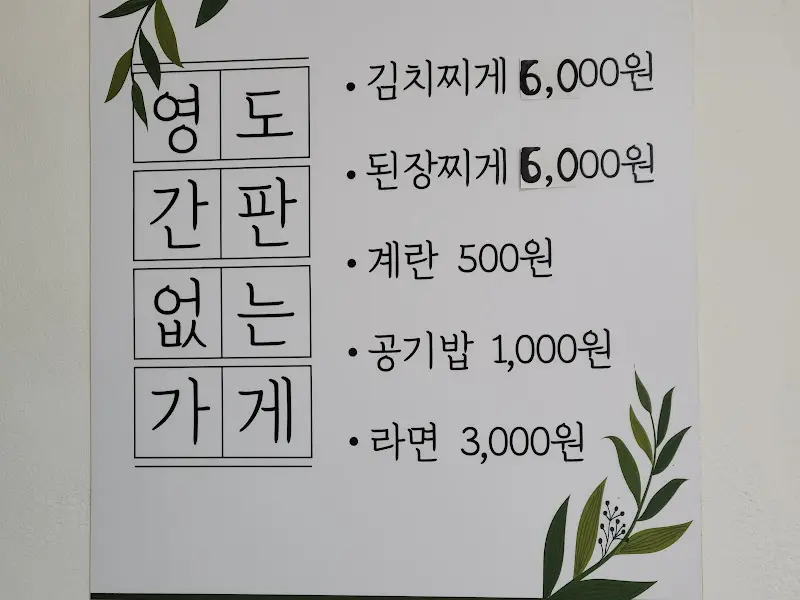 영도
간판
없는
가게
• 김치찌게 6,000원
• 된장찌게 6,000원
• 계란 500원
• 공기밥 1,000원
• 라면 3,000원